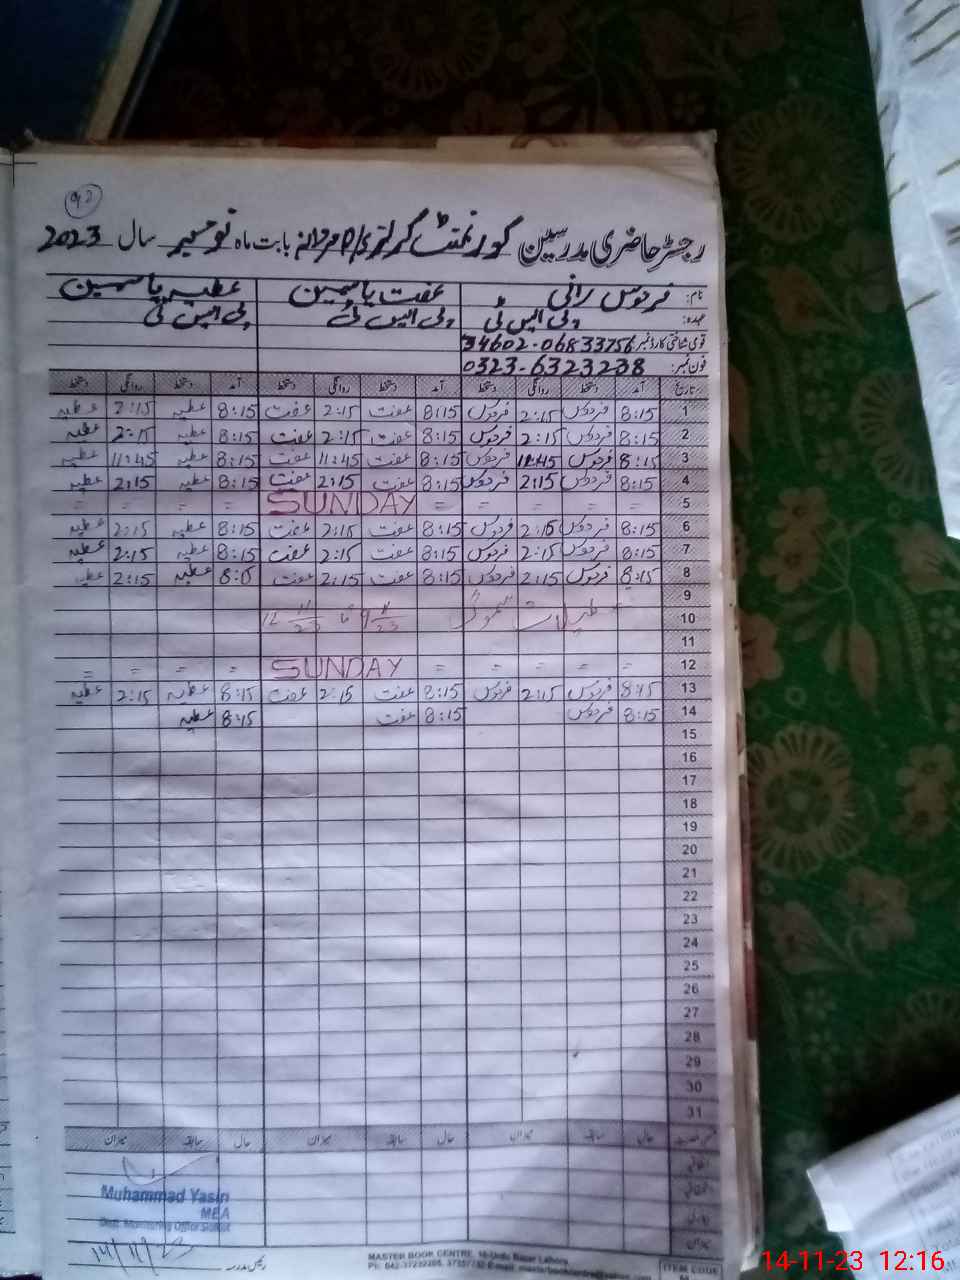 92
رجسٹر حاضری مدرسین گورنمنٹ گرلز بابت ماہ نومبر سال 2023
نام: فردوس رانی عفت یاسمین عطیہ یاسمین
عہدہ: پی ایس ٹی پی ایس ٹی پی ایس ٹی
قومی شناختی کارڈ نمبر 34602-06833756
فون نمبر: 0323-6323238
تاریخ آمد دستخط روانگی دستخط آمد دستخط روانگی دستخط آمد دستخط روانگی دستخط
1 8:15 فردوس 2:15 فردوس 8:15 عفت 2:15 عفت 8:15 عطیہ 2:15 عطیہ
2 8:15 فردوس 2:15 فردوس 8:15 عفت 2:15 عفت 8:15 عطیہ 2:15 عطیہ
3 8:15 فردوس 11:45 فردوس 8:15 عفت 11:45 عفت 8:15 عطیہ 11:45 عطیہ
4 8:15 فردوس 2:15 فردوس 8:15 عفت 2:15 عفت 8:15 عطیہ 2:15 عطیہ
5 = = = = = SUNDAY = = = =
6 8:15 فردوس 2:15 فردوس 8:15 عفت 2:15 عفت 8:15 عطیہ 2:15 عطیہ
7 8:15 فردوس 2:15 فردوس 8:15 عفت 2:15 عفت 8:15 عطیہ 2:15 عطیہ
8 8:15 فردوس 2:15 فردوس 8:15 عفت 2:15 عفت 8:15 عطیہ 2:15 عطیہ
9
10 تعطیلات سموگ 9 11/23 تا 12 11/23
11
12 = = = = = SUNDAY = = = =
13 8:15 فردوس 2:15 فردوس 8:15 عفت 2:15 عفت 8:15 عطیہ 2:15 عطیہ
14 8:15 فردوس 8:15 عفت 8:15 عطیہ
15
16
17
18
19
20
21
22
23
24
25
26
27
28
29
30
31
حال سابقہ میزان حال سابقہ میزان حال سابقہ میزان
اتفاقیہ
میزان
Muhammad Yasin
MEA
Distt. Monitoring Officer Sialkot
14/11/23
رئیس مدرسہ
MASTER BOOK CENTRE, 16-Urdu Bazar Lahore
ITEM CODE
14-11-23 12:16